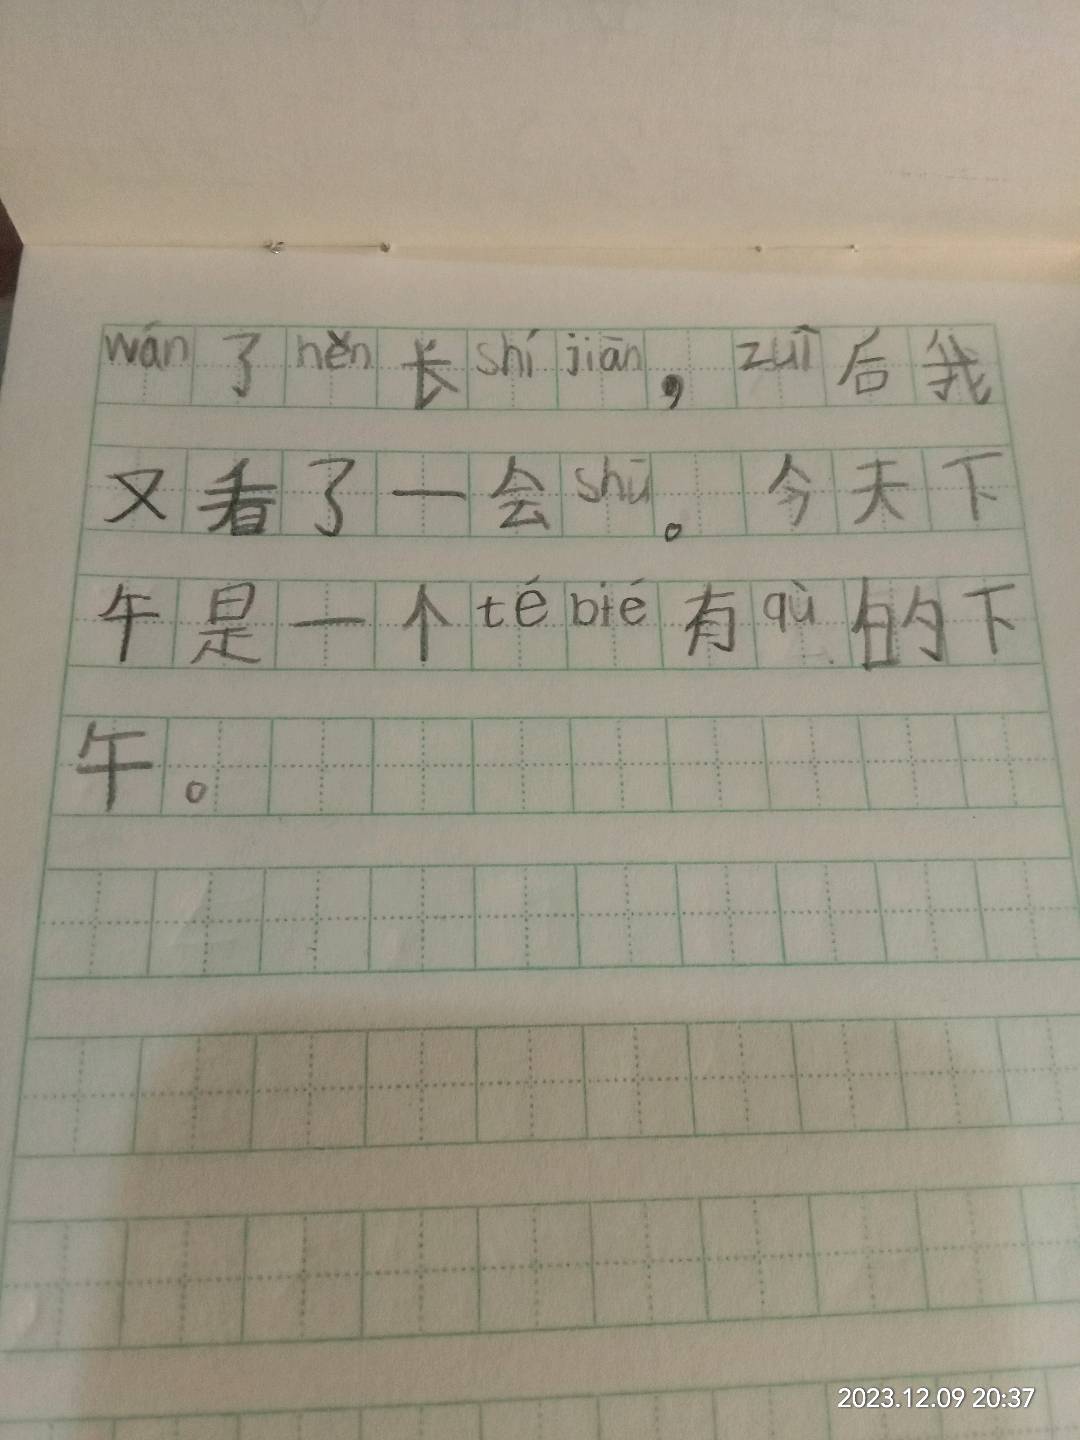 wán了hěn长shí jiān，zuì后我
又看了一会shū。今天下
午是一个té bié有qù的下
午。
2023.12.09 20:37